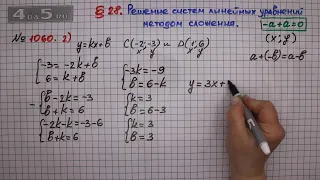 4 до 5.рф
§ 28. Решение систем линейных уравнений методом сложения.
-a+a=0
(x; y)
a+(-b)=a-b
№ 1060. 2) y=kx+b C(-2;-3) и D(1;6)
x y x y
{-3=-2k+b
{6=k+b
{b-2k=-3
-{b+k=6
{-2k-k=-3-6
{b+k=6
{-3k=-9
{b=6-k
{k=3
{b=6-3
{k=3
{b=3
y=3x+